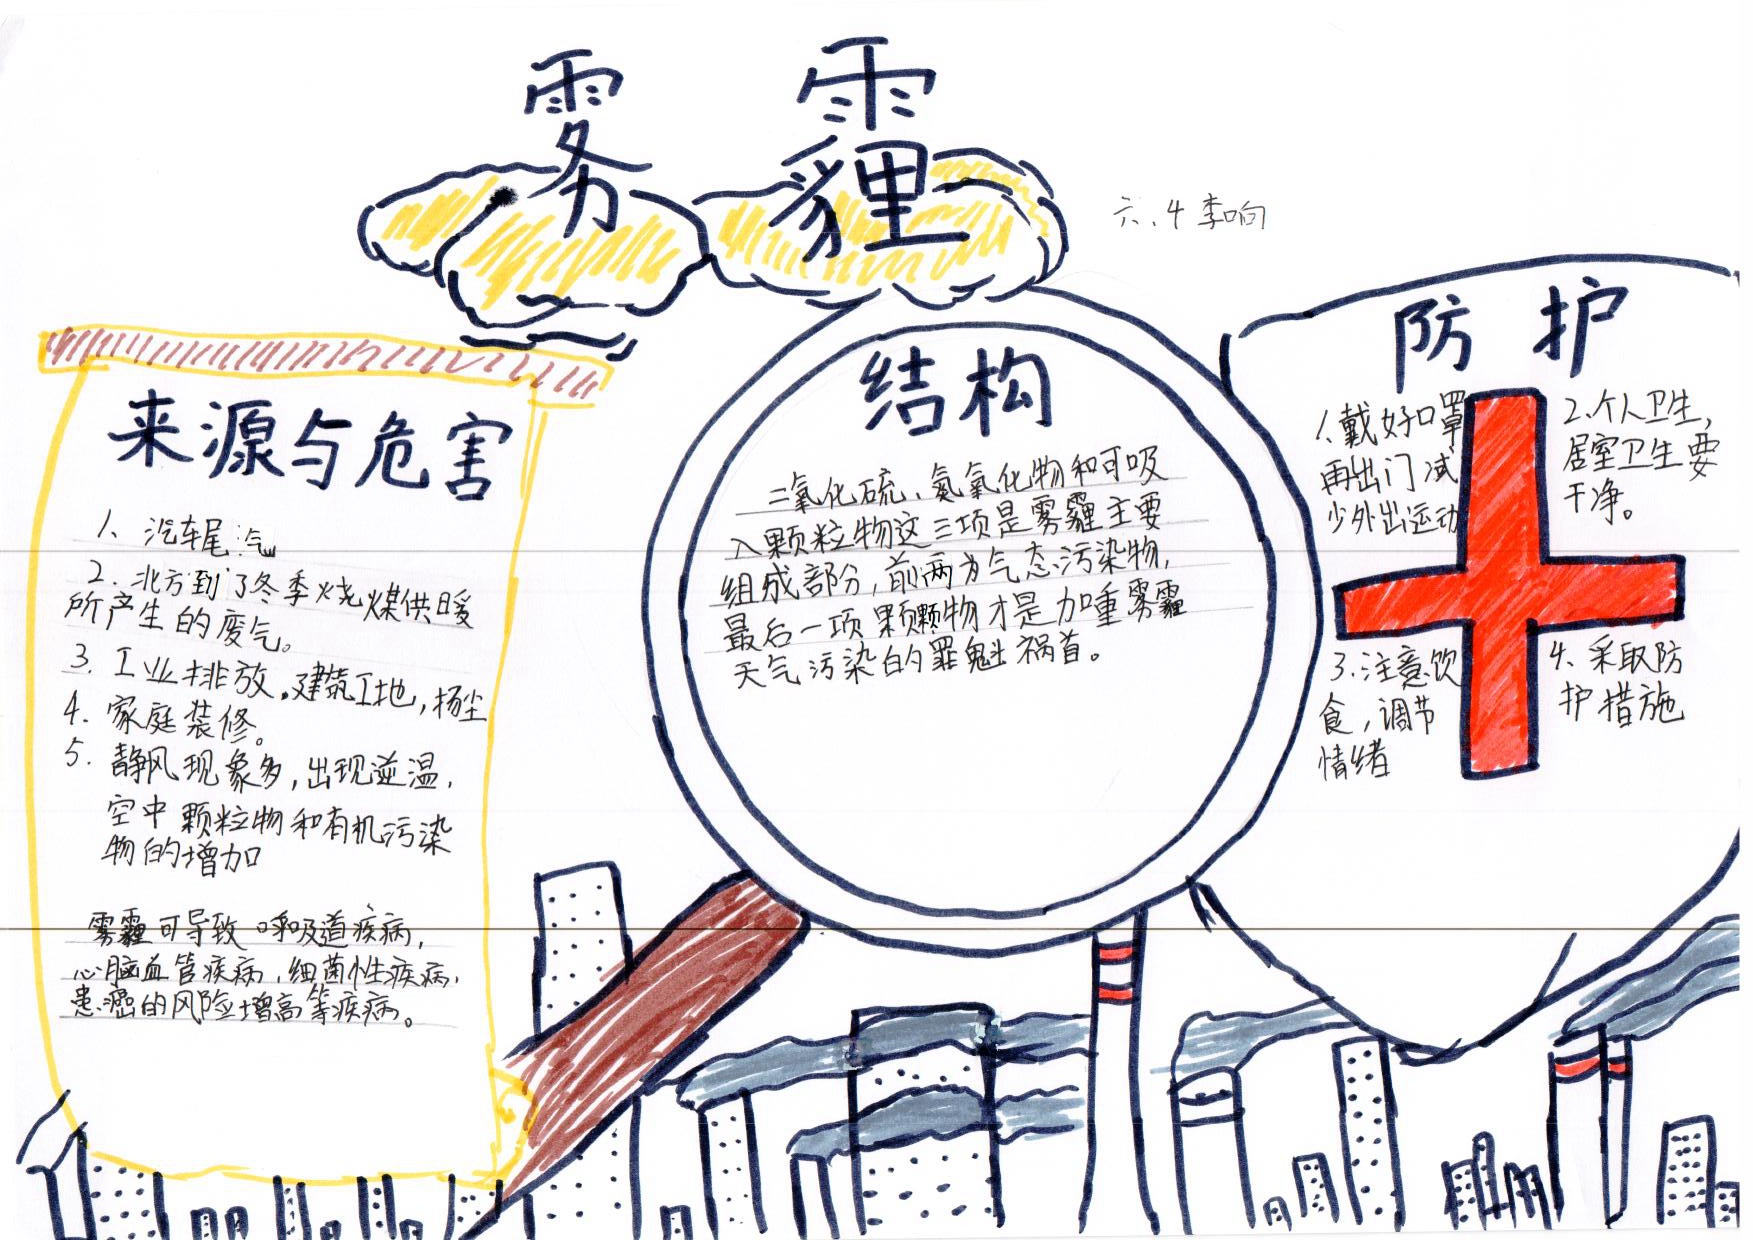 雾霾
六.4 李响
来源与危害
1、汽车尾汽
2.北方到了冬季烧煤供暖
所产生的废气。
3.工业排放.建筑工地,扬尘
4.家庭装修。
5.静风现象多,出现逆温,
空中颗粒物和有机污染
物的增加
雾霾可导致呼吸道疾病,
心脑血管疾病,细菌性疾病,
患癌的风险增高等疾病。
结构
二氧化硫、氮氧化物和可吸
入颗粒物这三项是雾霾主要
组成部分,前两为气态污染物,
最后一项颗颗物才是加重雾霾
天气污染的罪魁祸首。
防护
1、戴好口罩
再出门减
少外出运动
2.个人卫生,
居室卫生要
干净。
3.注意饮
食,调节
情绪
4、采取防
护措施